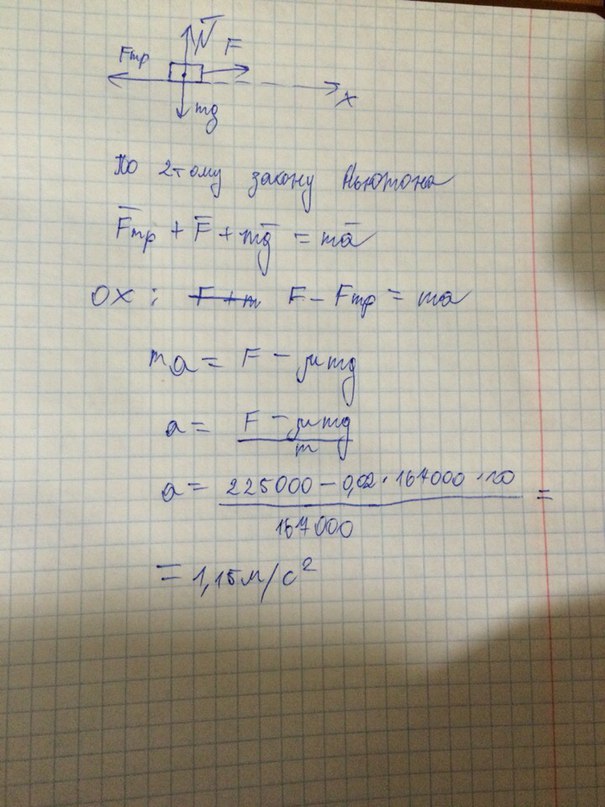 N̅
Fтр
F
x
mg
По 2тому закону Ньютона
F̅тр + F̅ + mg̅ = ma̅
OX: F + m F - Fтр = ma
ma = F - μmg
a = F - μmg
m
a = 225000 - 0,02 · 167000 · 10 =
167000
= 1,15 м/с²